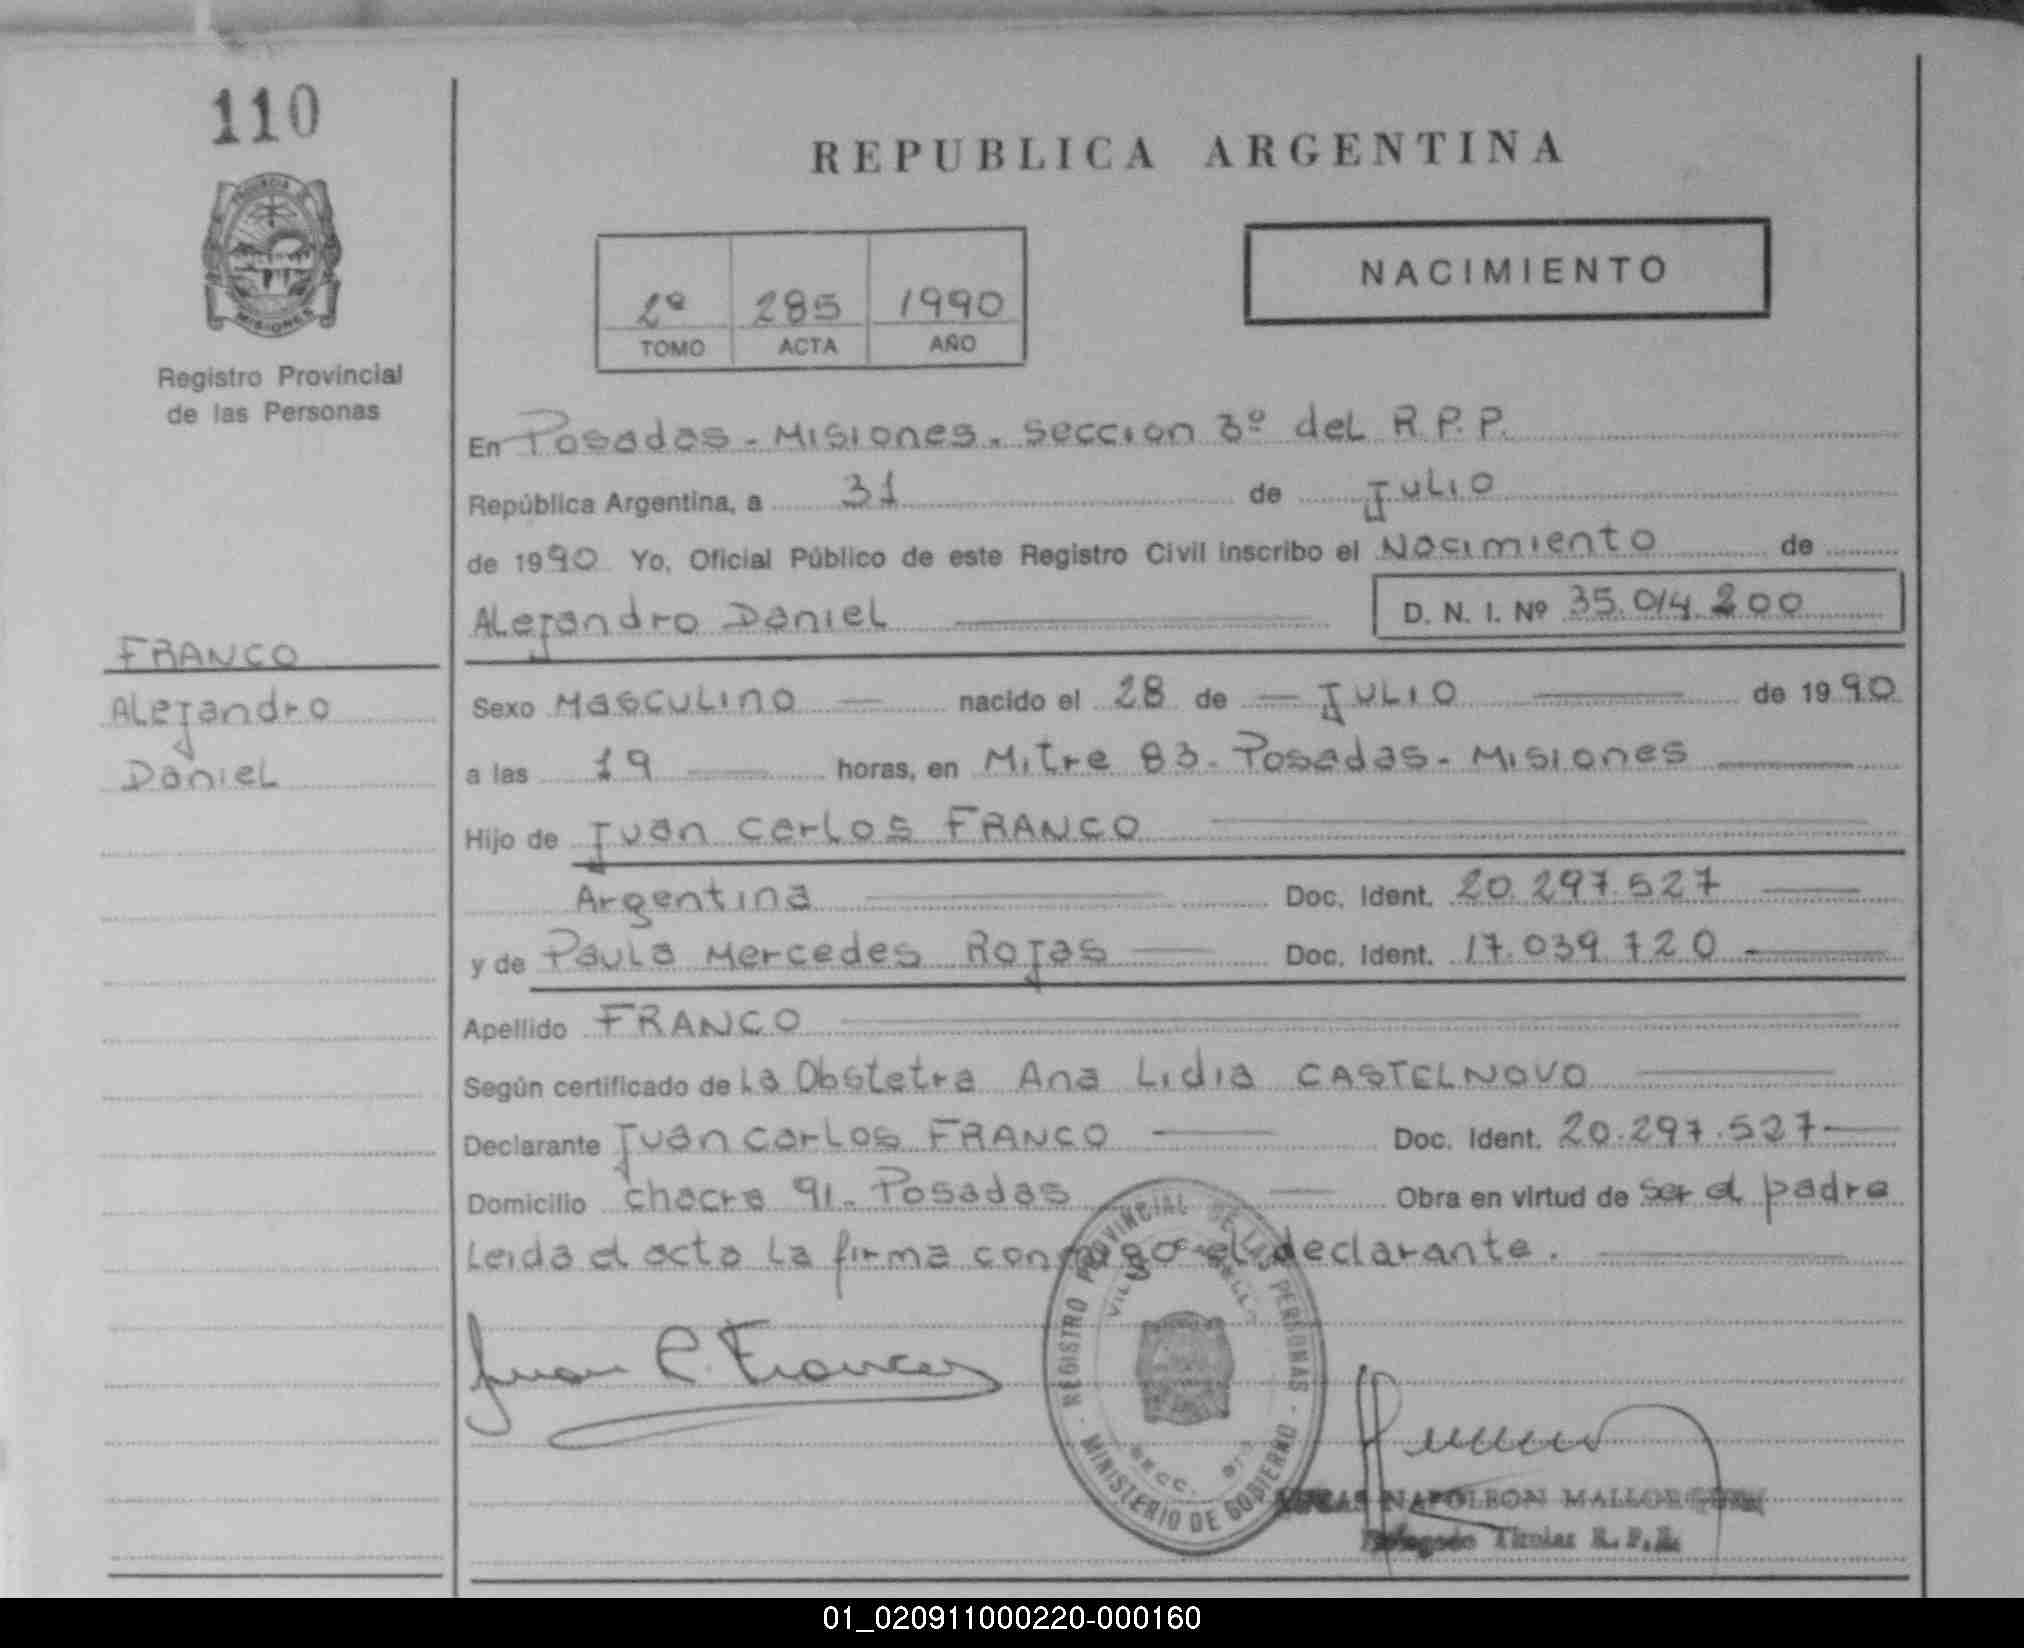 110
REPUBLICA ARGENTINA
NACIMIENTO
2º 285 1990
TOMO ACTA AÑO
MISIONES
Registro Provincial
de las Personas
En Posadas - Misiones - Seccion 3º del R.P.P.
República Argentina, a 31 de Julio
de 1990 Yo, Oficial Público de este Registro Civil inscribo el Nacimiento de
Alejandro Daniel D. N. I. Nº 35.014.200
FRANCO
Alejandro
Daniel
Sexo Masculino nacido el 28 de Julio de 1990
a las 19 horas, en Mitre 83 - Posadas - Misiones
Hijo de Juan Carlos FRANCO
Argentina Doc. Ident. 20.297.527
y de Paula Mercedes Rojas Doc. Ident. 17.039.720
Apellido FRANCO
Según certificado de La Obstetra Ana Lidia CASTELNOVO
Declarante Juan Carlos FRANCO Doc. Ident. 20.297.527
Domicilio chacra 91 - Posadas Obra en virtud de ser el padre
Leida el acta la firma conmigo el declarante.
Juan C. Franco
REGISTRO PROVINCIAL DE LAS PERSONAS - MINISTERIO DE GOBIERNO -
SECC.
NAPOLEON
Delegado Titular R. P. P.
01_020911000220-000160